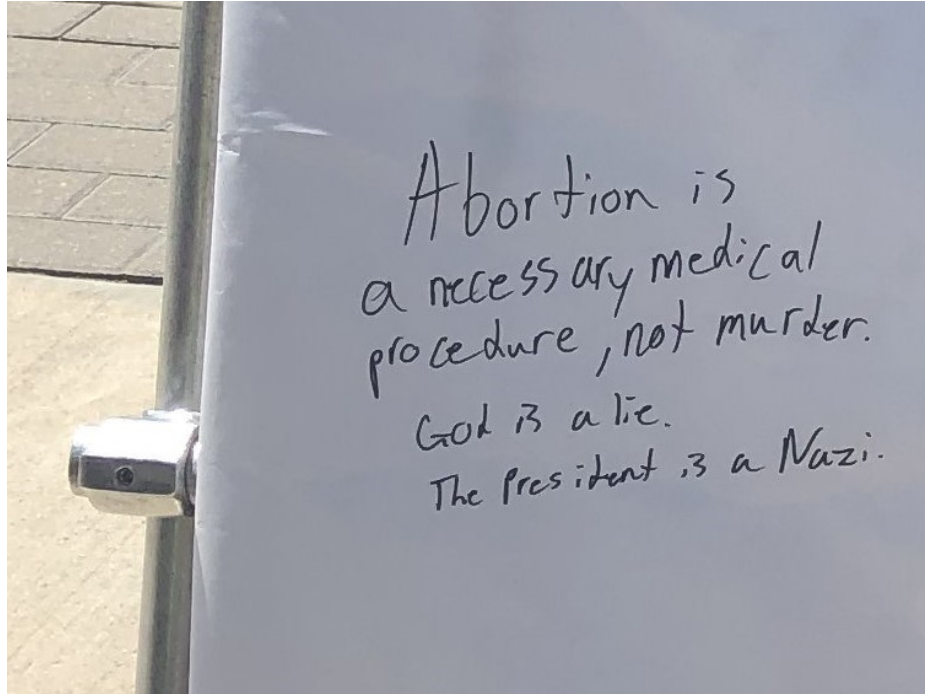 Abortion is
a necessary medical
procedure, not murder.
God is a lie.
The President is a Nazi.